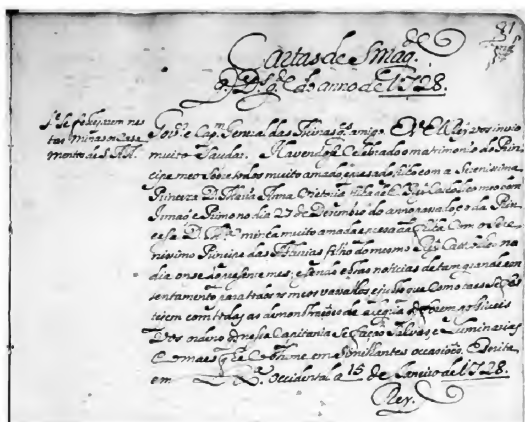 81
Cartas de S Mag.de
do anno de 1728.
se festejarem nes
tas minas os Casa
mentos de S. A.A.
Gov.or e Cap.m General das Minas amigo. Eu El Rey vos invio
muito Saudar. Havendose Celebrado o matrimonio do Prin
cipe meu Sobre todos muito amado, e prezado, filho com a Serenissima
Princeza D. Maria Anna Victoria, filha del Rey Catholico meu bom
Irmaõ e Primo no dia 27 de Dezembro do anno passado, e o da Prin
ceza D. M.a minha muito amada e prezada filha Com o Sere
nissimo Principe das Asturias filho do mesmo Rey Catholico no
dia onze do prezente mes; e sendo estas noticias de tam grande con
sentamento para todos os meos vassallos e justo que Como taes se fes
tejem com todas as demonstrações de alegria
Vos ordeno q nessa Capitania se façaõ Salvas, e Luminarias
e o mais que he Costume em Similhantes occasiões. Escrita
em Lx.a occidental a 15 de Janeiro de 1728.
Rey.